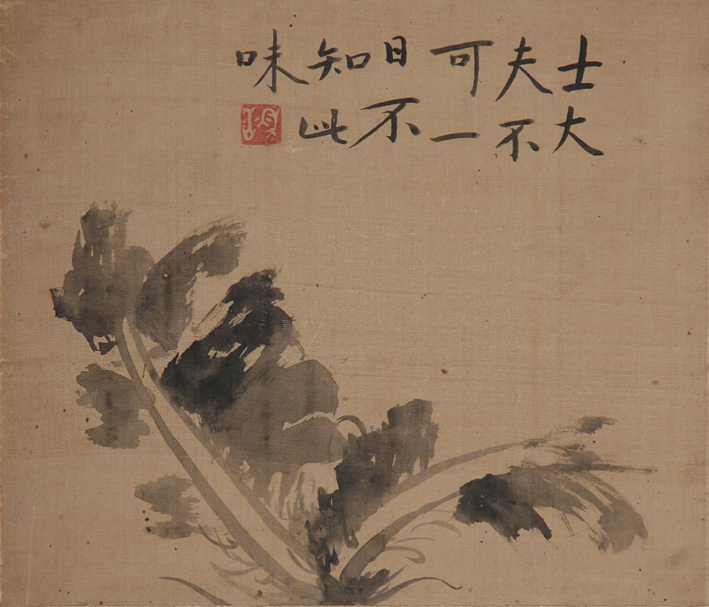 士大
夫不
可一
日不
知此
味